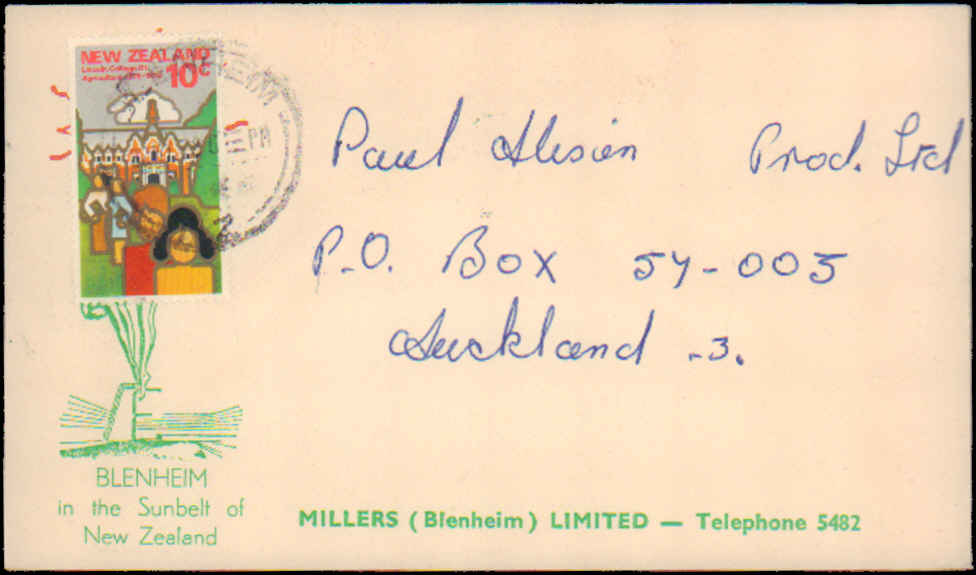 NEW ZEALAND
Lincoln College
10c
HEIM
PM
Paul Prod. Ltd
P.O. Box 57-005
Auckland -3.
BLENHEIM
in the Sunbelt of
New Zealand
MILLERS (Blenheim) LIMITED — Telephone 5482